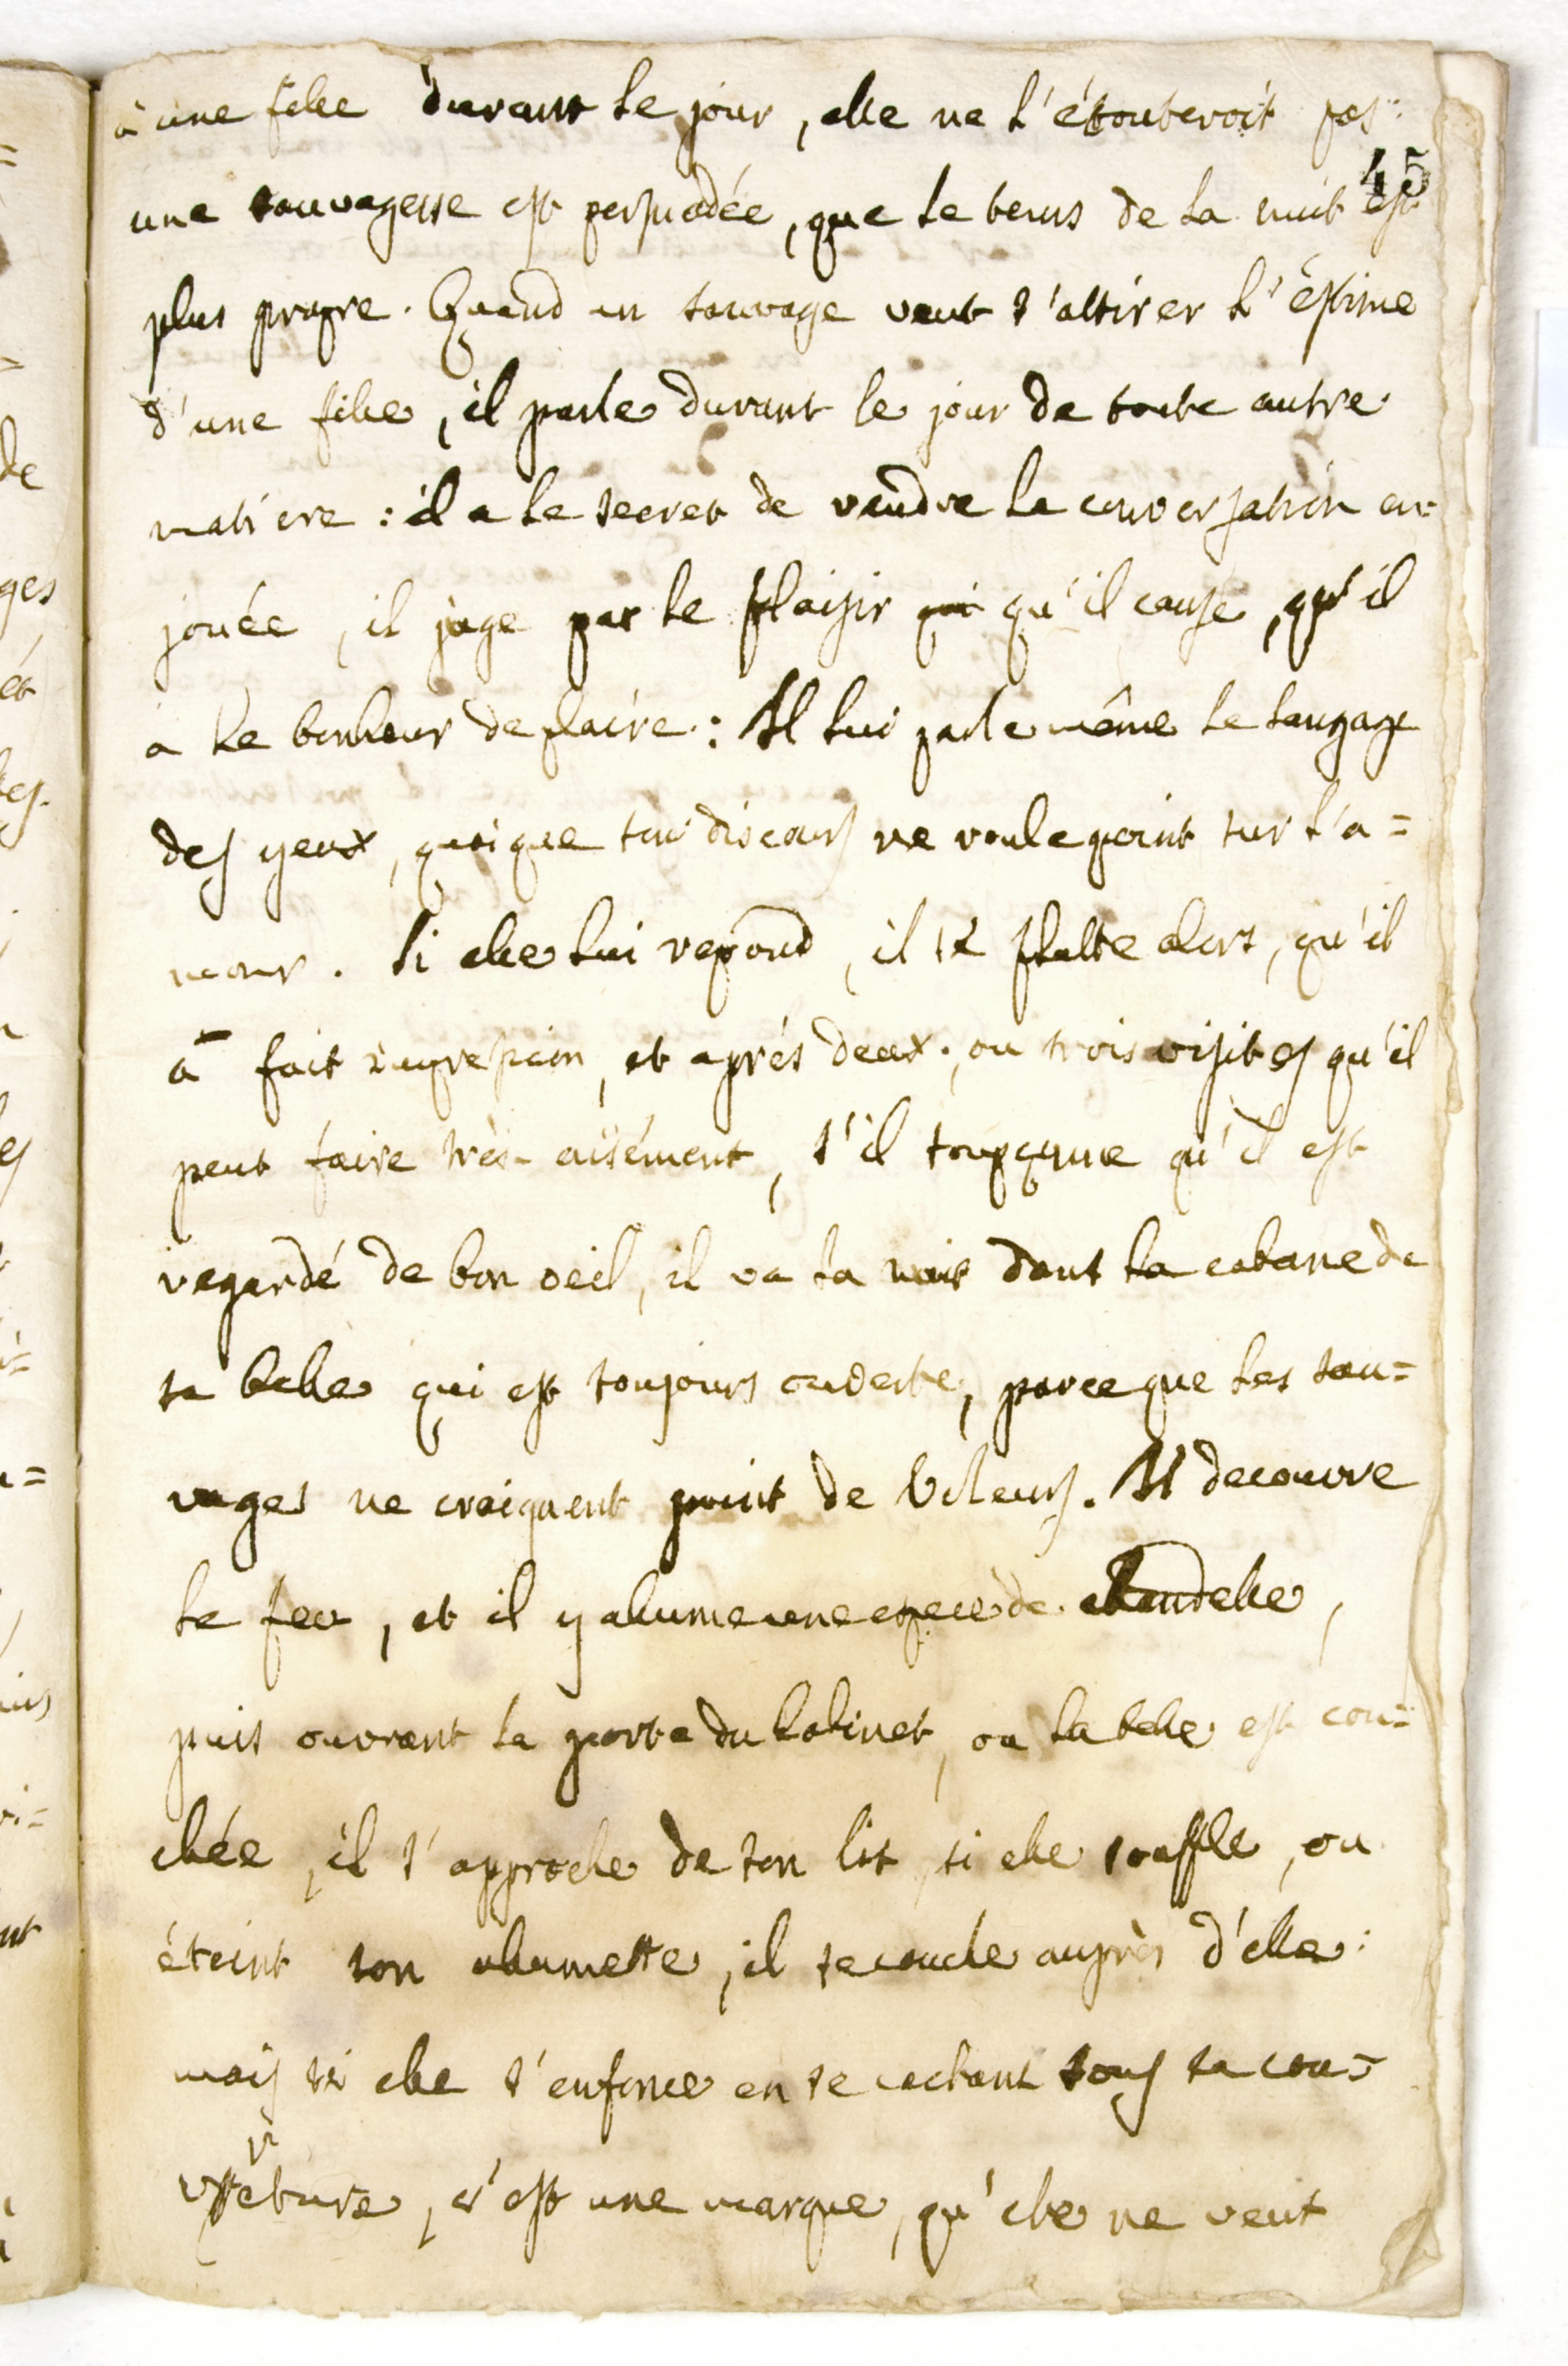 à une fille durant le jour, elle ne l'écouteroit pas:
45
une sauvagesse est persuadée, que le tems de la nuit est
plus propre. Quand un sauvage veut s'attirer l'éstime
d'une fille, il parle durant le jour de toute autre
matiere: il a le secret de rendre la conversation en=
jouée, il juge par le plaisir qu'il cause, qu'il
a le bonheur de plaire: Il lui parle même le langage
des yeux, quoique son discours ne roule point sur l'a=
mour. Si elle lui repond, il se flatte alors, qu'il
à fait impression, et aprés deux, ou trois visites qu'il
peut faire très-aisément, s'il soupçonne qu'il est
regardé de bon oeil, il va la nuit dans la cabane de
sa belle qui est toujours ouverte, parceque les sau=
vages ne craignent point de voleurs. Il decouvre
le feu, et il y allume une espece de chandelle,
puis ouvrant la porte du Cabinet, ou la belle est cou=
chée, il s'approche de son lit, si elle souffle, ou
éteint son allumette, il se couche auprès d'elle:
mais si elle s'enfonce en se cachant sous sa cou=
verture, c'est une marque, qu'elle ne veut